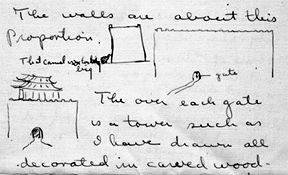 The walls are about this
Proportion.
The camel
big
gate
The over each gate
is a tower such as
I have drawn all
decorated in carved wood-